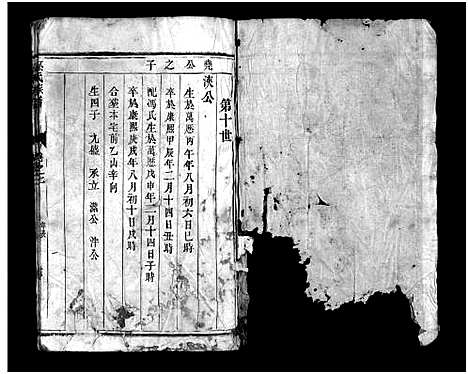 第十世
堯公之子
浹公
生於萬歷丙午年八月初六日巳時
卒於康熙甲辰年二月十四日丑時
配馮氏生於萬歷戊申年二月十四日子時
卒於康熙庚戌年八月初十日戌時
合墓本宅前乙山辛向
生四子 九儀 承立 滋公 沖公